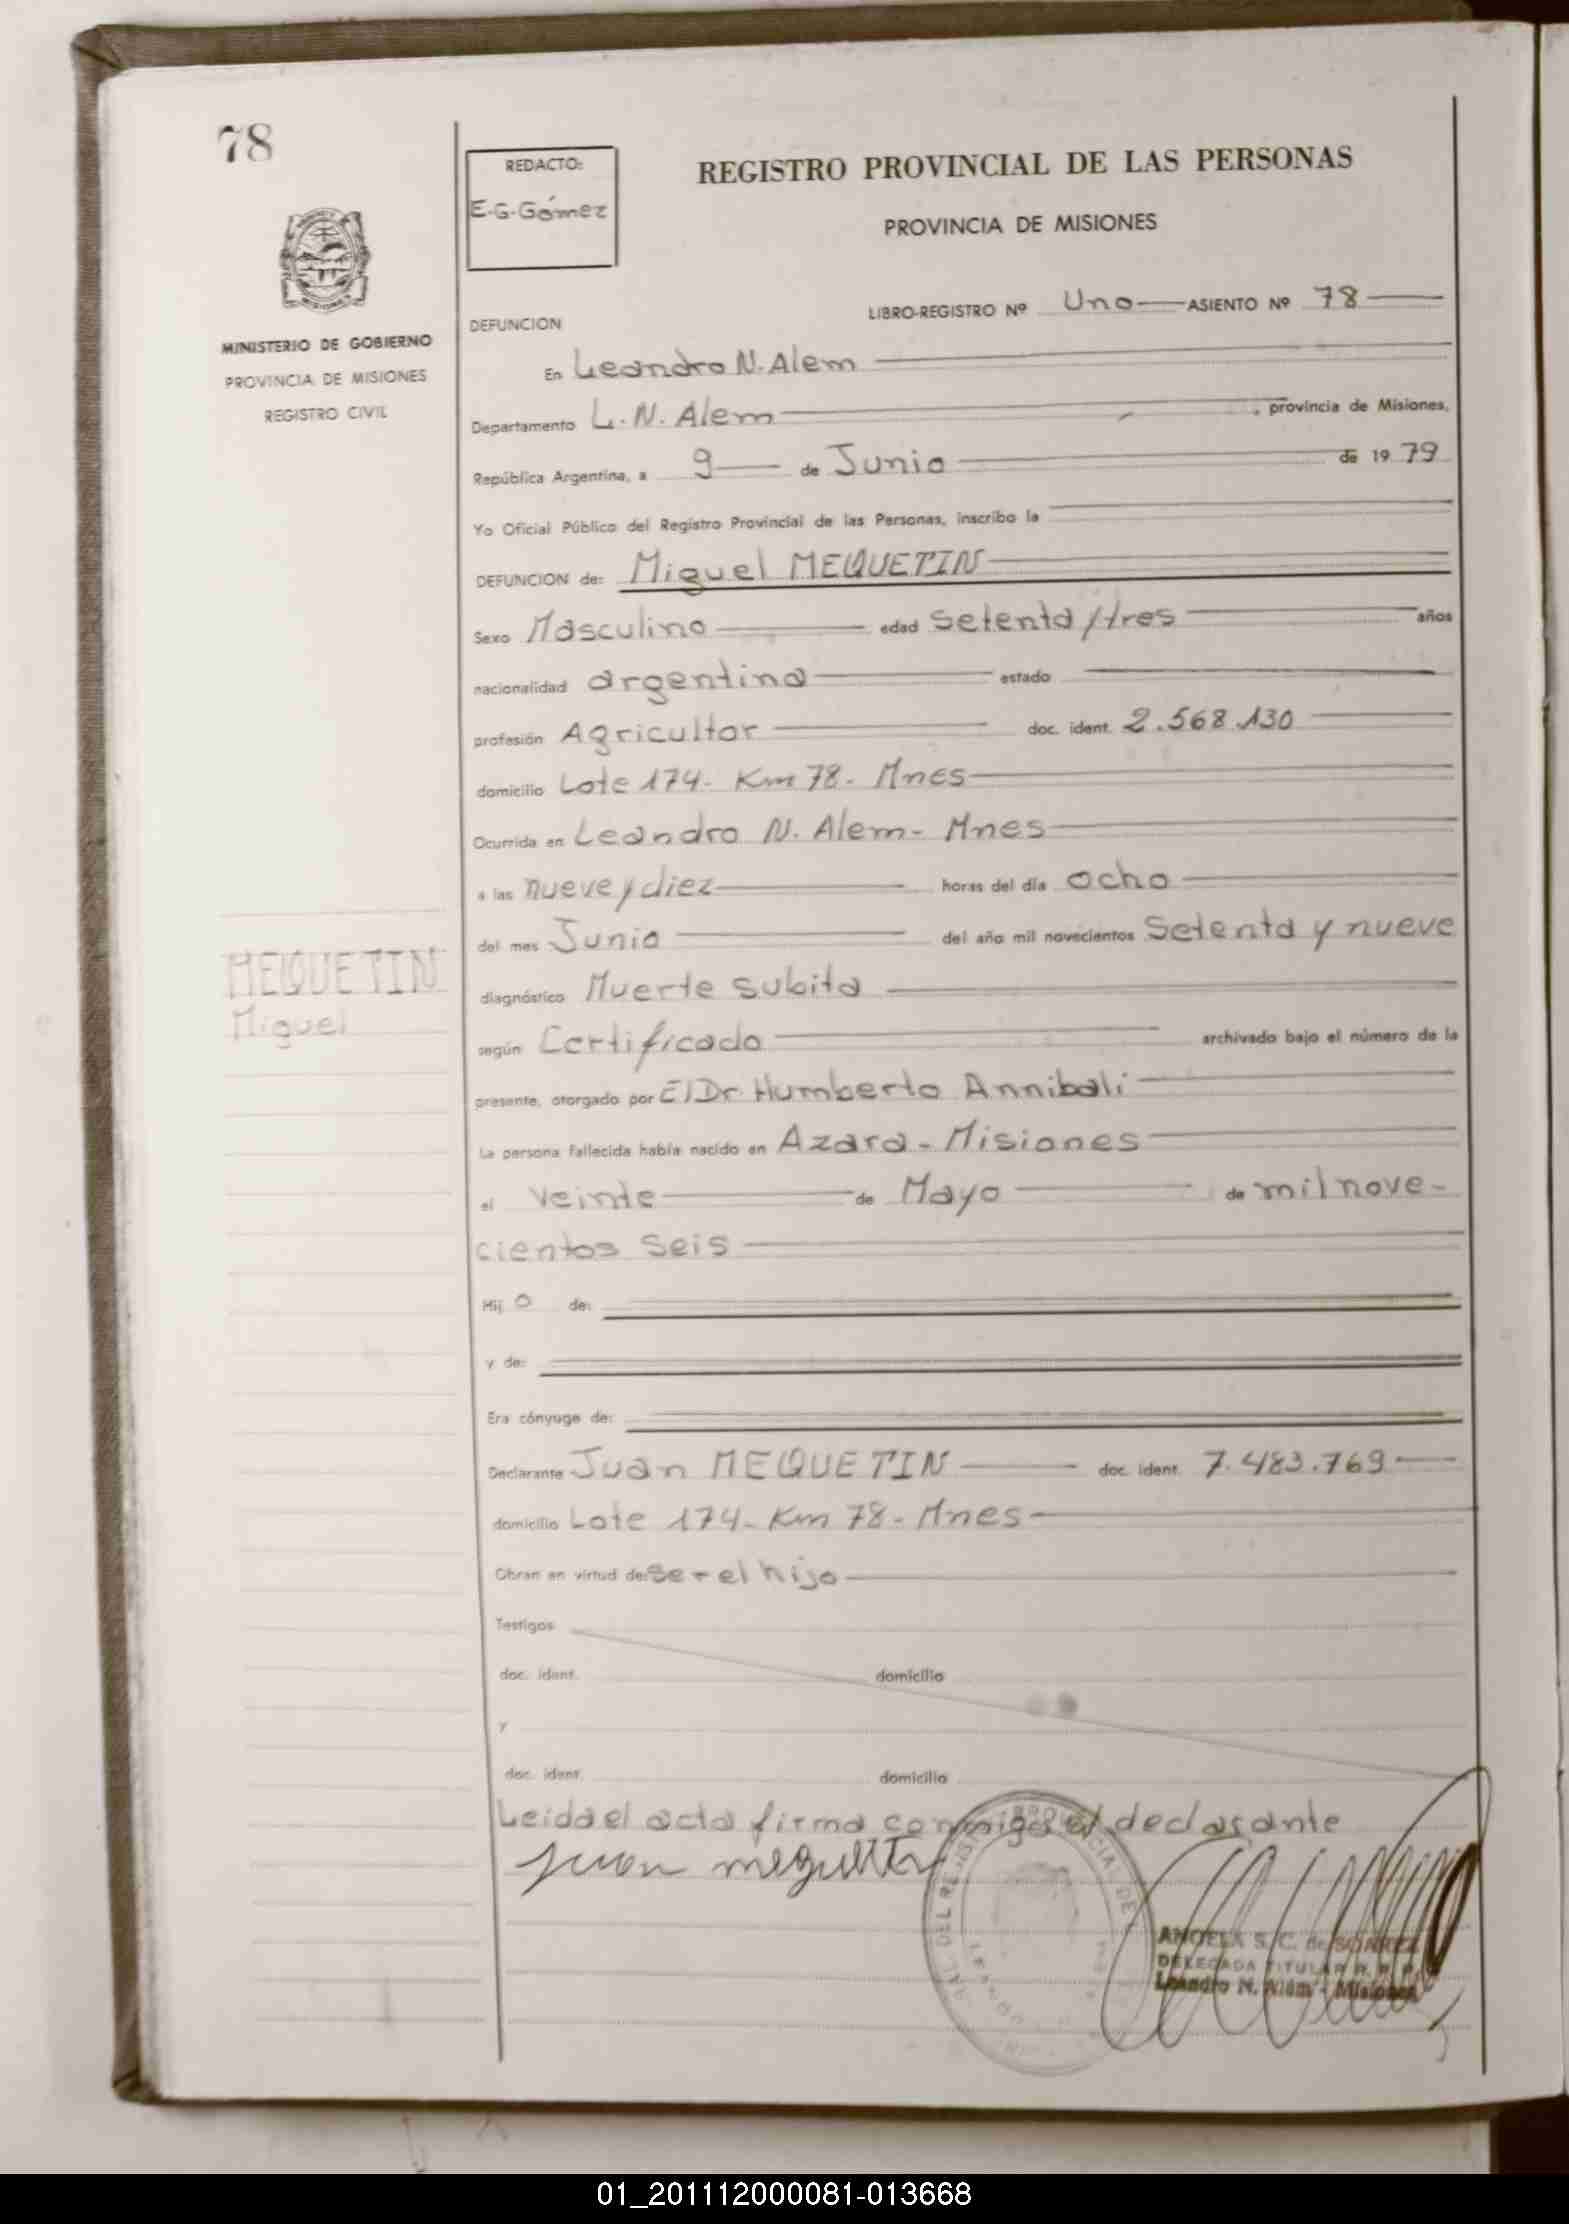 78
REDACTO:
E.G. Gómez
REGISTRO PROVINCIAL DE LAS PERSONAS
PROVINCIA DE MISIONES
MINISTERIO DE GOBIERNO
PROVINCIA DE MISIONES
REGISTRO CIVIL
LIBRO-REGISTRO Nº Uno ASIENTO Nº 78
DEFUNCION
En Leandro N. Alem
Departamento L. N. Alem, provincia de Misiones,
República Argentina, a 9 de Junio de 1979
Yo Oficial Público del Registro Provincial de las Personas, inscribo la
DEFUNCION de: Miguel MEQUETIN
Sexo Masculino edad Setenta y tres años
nacionalidad argentina estado
profesión Agricultor doc. ident. 2.568.130
domicilio Lote 174- Km 78- Mnes
Ocurrida en Leandro N. Alem- Mnes
a las nueve y diez horas del día ocho
del mes Junio del año mil novecientos Setenta y nueve
MEQUETIN
Miguel
diagnóstico Muerte subita
según Certificado archivado bajo el número de la
presente, otorgado por El Dr. Humberto Annibali
La persona fallecida había nacido en Azara- Misiones
el veinte de Mayo de mil nove-
cientos seis
Hij o de:
y de:
Era cónyuge de:
Declarante Juan MEQUETIN doc. ident. 7.483.769
domicilio Lote 174- Km 78- Mnes
Obran en virtud de: ser el hijo
Testigos
doc. ident. domicilio
y
doc. ident. domicilio
Leida el acta firma conmigo el declarante
Juan
ANGELA S. C. de SOAREZ
DELEGADA TITULAR R. P. P.
Leandro N. Alem - Misiones
01_201112000081-013668